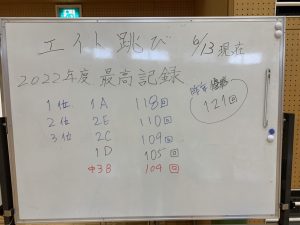 エイト跳び 6/13 現在
2022年度 最高記録
1位 1A 118回
2位 2E 110回
3位 2C 109回
1D 105回
中3B 104回
昨年
121回